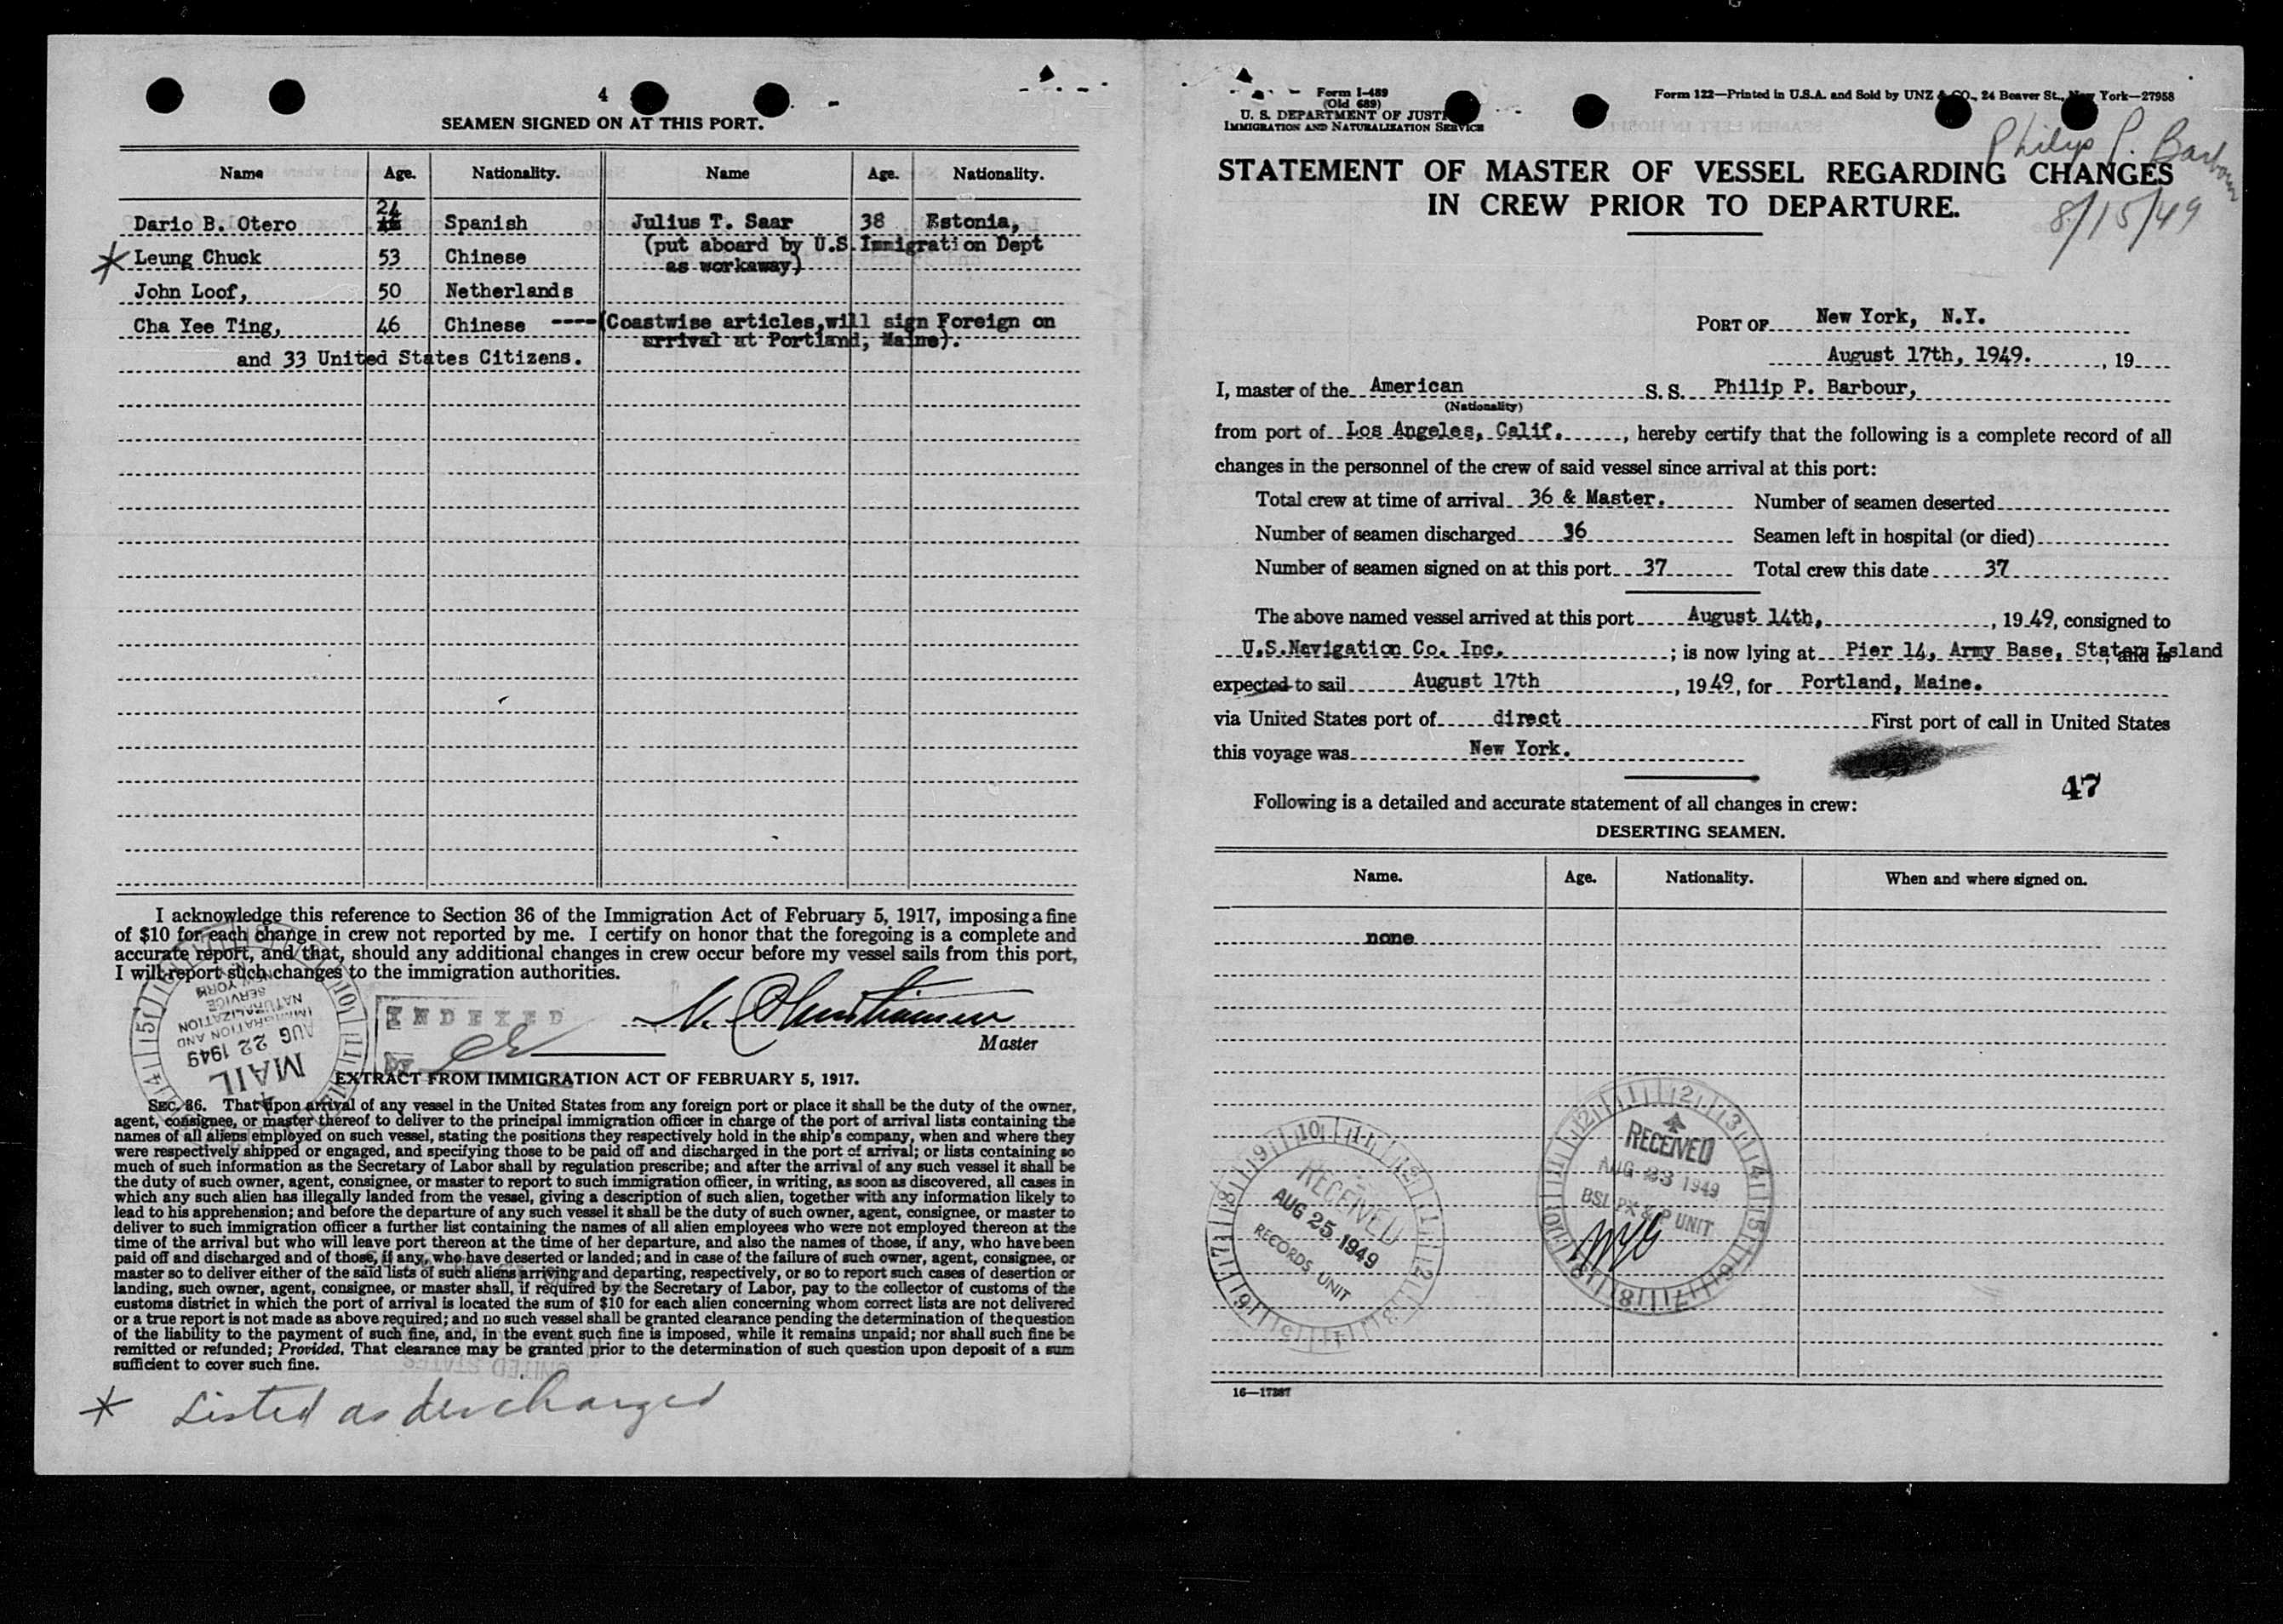 4
SEAMEN SIGNED ON AT THIS PORT.
Name Age. Nationality. Name Age. Nationality.
Dario B. Otero 24 Spanish Julius T. Saar 38 Estonia,
(put aboard by U.S. Immigration Dept
as workaway)
* Leung Chuck 53 Chinese
John Loof, 50 Netherlands
Cha Yee Ting, 46 Chinese ----(Coastwise articles,will sign Foreign on
arrival at Portland, Maine).
and 33 United States Citizens.
I acknowledge this reference to Section 36 of the Immigration Act of February 5, 1917, imposing a fine
of $10 for each change in crew not reported by me. I certify on honor that the foregoing is a complete and
accurate report, and that, should any additional changes in crew occur before my vessel sails from this port,
I will report such changes to the immigration authorities.
INDEXED
BY
Master
MAIL
AUG 22 1949
IMMIGRATION AND
NATURALIZATION
SERVICE
NEW YORK
EXTRACT FROM IMMIGRATION ACT OF FEBRUARY 5, 1917.
SEC. 36. That upon arrival of any vessel in the United States from any foreign port or place it shall be the duty of the owner,
agent, consignee, or master thereof to deliver to the principal immigration officer in charge of the port of arrival lists containing the
names of all aliens employed on such vessel, stating the positions they respectively hold in the ship's company, when and where they
were respectively shipped or engaged, and specifying those to be paid off and discharged in the port of arrival; or lists containing so
much of such information as the Secretary of Labor shall by regulation prescribe; and after the arrival of any such vessel it shall be
the duty of such owner, agent, consignee, or master to report to such immigration officer, in writing, as soon as discovered, all cases in
which any such alien has illegally landed from the vessel, giving a description of such alien, together with any information likely to
lead to his apprehension; and before the departure of any such vessel it shall be the duty of such owner, agent, consignee, or master to
deliver to such immigration officer a further list containing the names of all alien employees who were not employed thereon at the
time of the arrival but who will leave port thereon at the time of her departure, and also the names of those, if any, who have been
paid off and discharged and of those, if any, who have deserted or landed; and in case of the failure of such owner, agent, consignee, or
master so to deliver either of the said lists of such aliens arriving and departing, respectively, or so to report such cases of desertion or
landing, such owner, agent, consignee, or master shall, if required by the Secretary of Labor, pay to the collector of customs of the
customs district in which the port of arrival is located the sum of $10 for each alien concerning whom correct lists are not delivered
or a true report is not made as above required; and no such vessel shall be granted clearance pending the determination of the question
of the liability to the payment of such fine, and, in the event such fine is imposed, while it remains unpaid; nor shall such fine be
remitted or refunded; Provided, That clearance may be granted prior to the determination of such question upon deposit of a sum
sufficient to cover such fine.
* Listed as discharged
Form I-489
(Old 689)
U. S. DEPARTMENT OF JUSTI
IMMIGRATION AND NATURALIZATION SERVICE
Form 122—Printed in U.S.A. and Sold by UNZ & CO., 24 Beaver St., New York—27958
Philip P. Barbour
8/15/49
STATEMENT OF MASTER OF VESSEL REGARDING CHANGES
IN CREW PRIOR TO DEPARTURE.
PORT OF New York, N.Y.
August 17th, 1949. , 19
I, master of the American S. S. Philip P. Barbour,
(Nationality)
from port of Los Angeles, Calif. , hereby certify that the following is a complete record of all
changes in the personnel of the crew of said vessel since arrival at this port:
Total crew at time of arrival 36 & Master. Number of seamen deserted
Number of seamen discharged 36 Seamen left in hospital (or died)
Number of seamen signed on at this port 37 Total crew this date 37
The above named vessel arrived at this port August 14th, , 1949, consigned to
U.S.Navigation Co. Inc. ; is now lying at Pier 14, Army Base, Staten Island ; and is
expected to sail August 17th , 1949, for Portland, Maine.
via United States port of direct First port of call in United States
this voyage was New York.
47
Following is a detailed and accurate statement of all changes in crew:
DESERTING SEAMEN.
Name. Age. Nationality. When and where signed on.
none
RECEIVED
AUG 25 1949
RECORDS UNIT
RECEIVED
AUG 23 1949
BSI PX & P UNIT
16—17387